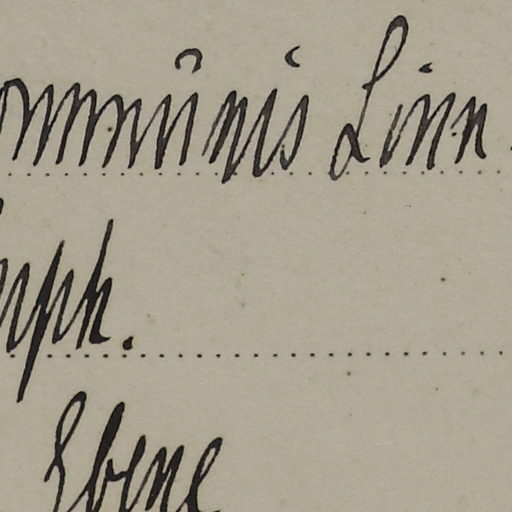 ommunis Linn.
mph.
Ebene